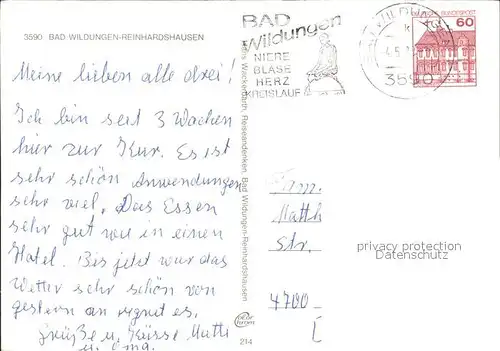 3590 BAD WILDUNGEN-REINHARDSHAUSEN
BAD
Wildungen
NIERE
BLASE
HERZ
KREISLAUF
3590
DEUTSCHE BUNDESPOST
60
Meine lieben alle drei!
Ich bin seit 3 Wochen
hier zur Kur. Es ist
sehr schön Anwendungen
sehr viel. Das Essen
sehr gut wie in einen
Hotel. Bis jetzt war das
Wetter sehr schön von
gestern an regnet es.
Grüße u. Küsse Mutti
u. Oma.
Reiseandenken, Bad Wildungen-Reinhardshausen
214
Fam.
Matth
Str.
4700
privacy protection
Datenschutz